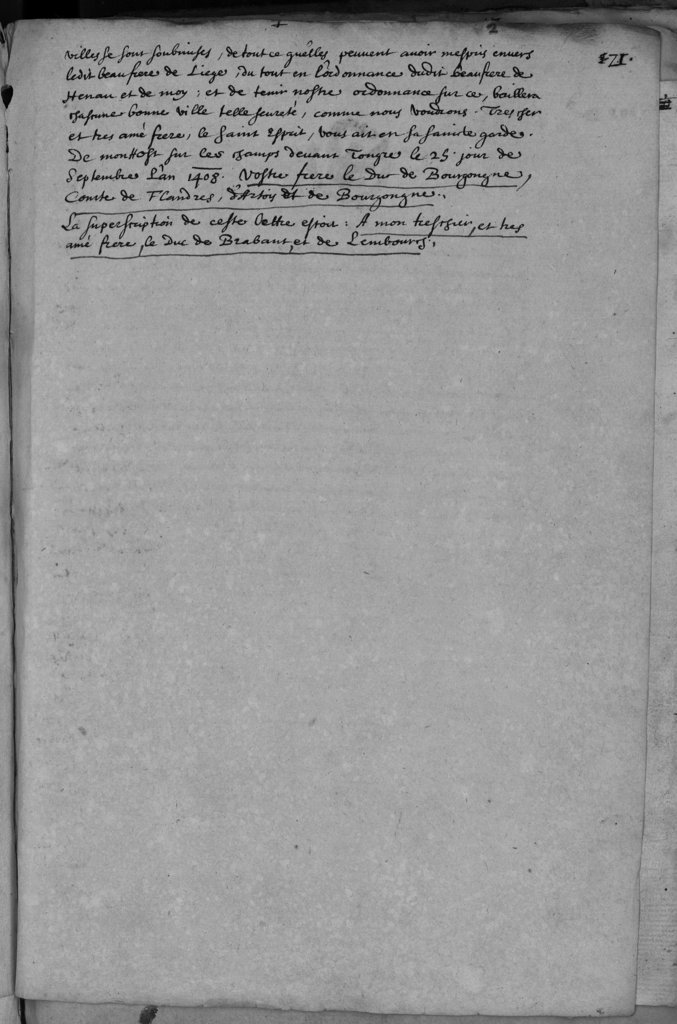 2
171.
villes se sont soubmises, de tout ce qu'elles peuvent avoir mespris envers
ledit beaufrere de Liege, du tout en l'ordonnance dudit beaufrere de
Henau et de moy ; et de tenir nostre ordonnance sur ce, baillera
chascune bonne ville telle seureté, comme nous voudrons. Trescher
et tres amé frere, le saint Esprit, vous ait en sa saincte garde.
De mon Host sur les champs devant Tongre le 25. jour de
Septembre L'an 1408. Vostre frere le Duc de Bourgongne,
Comte de Flandres, d'Artois et de Bourgongne.
La superscription de ceste lettre estoit : A mon treschier, et tres
amé frere, le Duc de Brabant, et de Lembourg.